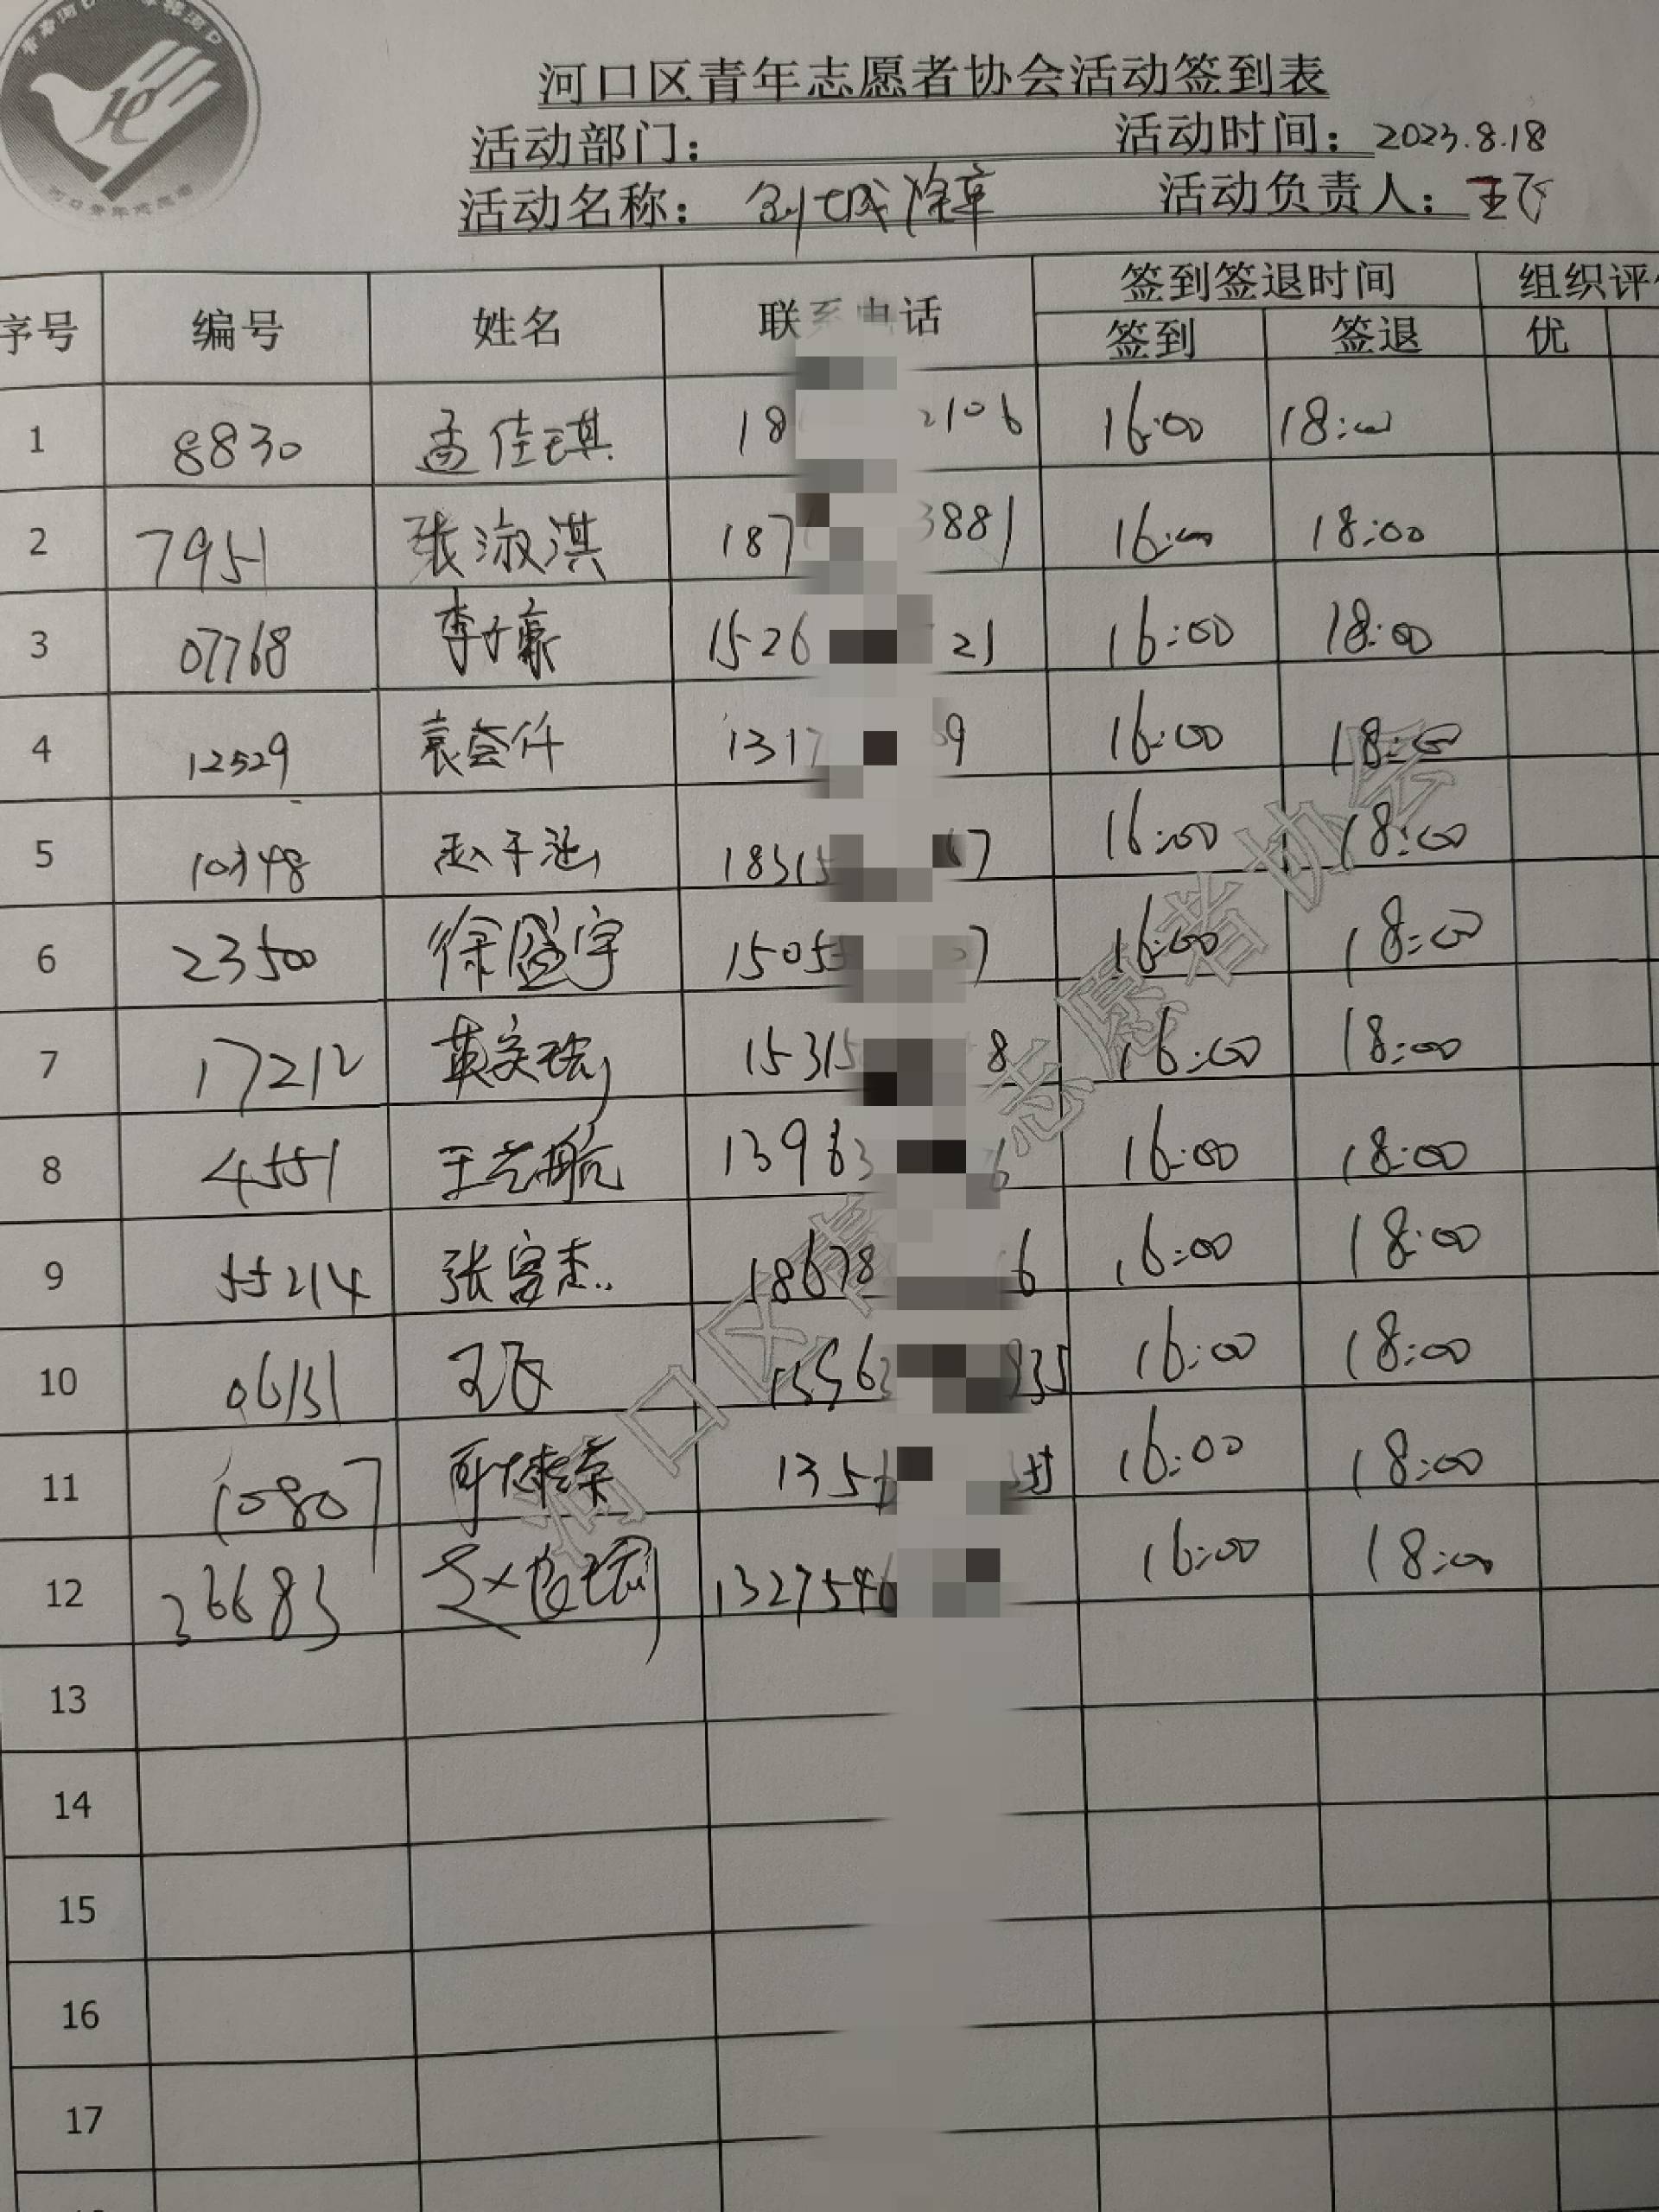 河口区青年志愿者协会活动签到表
活动部门： 活动时间：2023.8.18
活动名称：创城除草 活动负责人：王飞
序号 编号 姓名 联系电话 签到签退时间 组织评
签到 签退 优
1 8830 孟佳琪 18 2106 16:00 18:00
2 7951 张淑淇 187 3881 16:00 18:00
3 07768 李 豪 1526 21 16:00 18:00
4 12529 袁 仟 1317 9 16:00 18:00
5 赵 涵 18315 7 16:00 18:00
6 23500 徐盛宇 1505 7 16:00 18:00
7 17212 15315 8 16:00 18:00
8 4551 王艺航 13963 6 16:00 18:00
9 55214 张 杰 18678 6 16:00 18:00
10 06131 王飞 15563 935 16:00 18:00
11 10807 135 16:00 18:00
12 36683 1327546 16:00 18:00
13
14
15
16
17
河口区青 志愿者协会